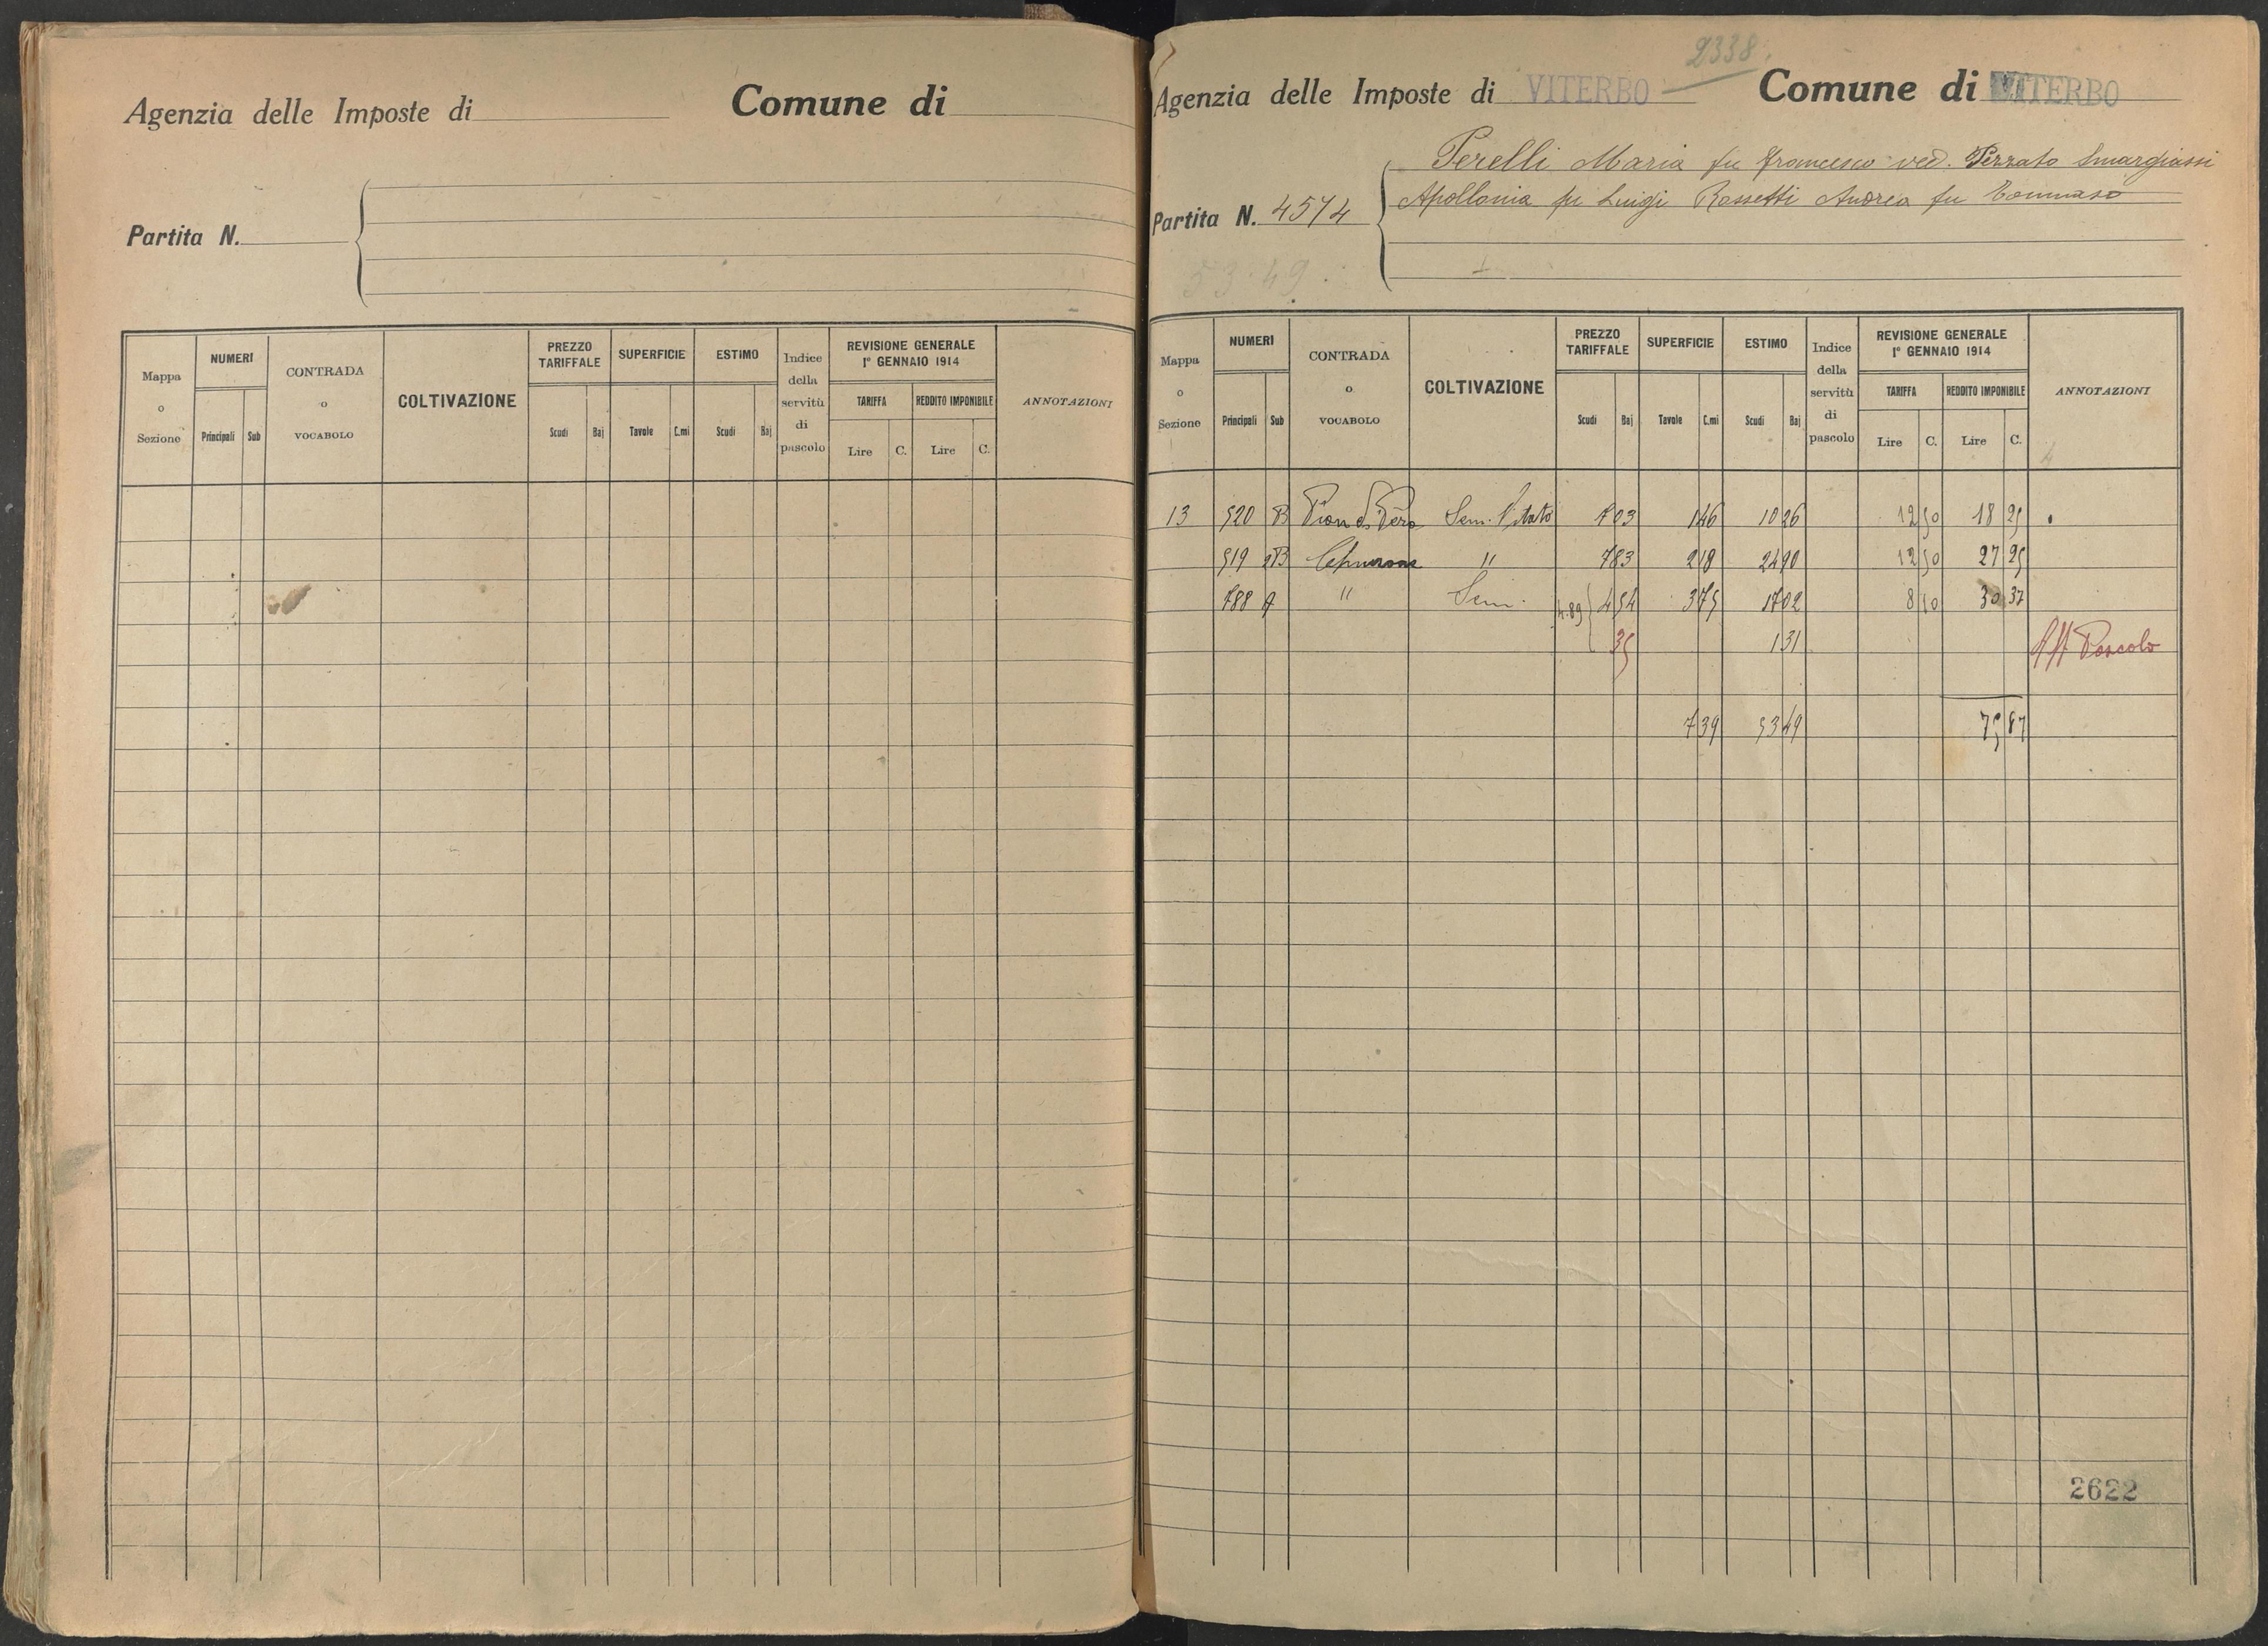 Agenzia delle Imposte di Comune di
Partita N.
Mappa o Sezione NUMERI Principali Sub CONTRADA o VOCABOLO COLTIVAZIONE PREZZO TARIFFALE Scudi Baj SUPERFICIE Tavole C.mi ESTIMO Scudi Baj Indice della servitù di pascolo REVISIONE GENERALE 1° GENNAIO 1914 TARIFFA Lire C. REDDITO IMPONIBILE Lire C. ANNOTAZIONI
2338.
Agenzia delle Imposte di VITERBO Comune di VITERBO
Perelli Maria fu Francesco ved. Pezzato Smargiassi
Partita N. 4574 Apollonia fu Luigi Rossetti Andrea fu Tommaso
53.49.
Mappa o Sezione NUMERI Principali Sub CONTRADA o VOCABOLO COLTIVAZIONE PREZZO TARIFFALE Scudi Baj SUPERFICIE Tavole C.mi ESTIMO Scudi Baj Indice della servitù di pascolo REVISIONE GENERALE 1° GENNAIO 1914 TARIFFA Lire C. REDDITO IMPONIBILE Lire C. ANNOTAZIONI
13 520 B Sem. Vitato 7 03 1 46 10 26 12 50 18 25
519 2B " 7 83 2 18 24 90 12 50 27 25
788 A " Sem. 4.89 4 54 3 75 17 02 8 10 30 37
35 1 31 Aff Pascolo
7 39 53 49 75 87
2622